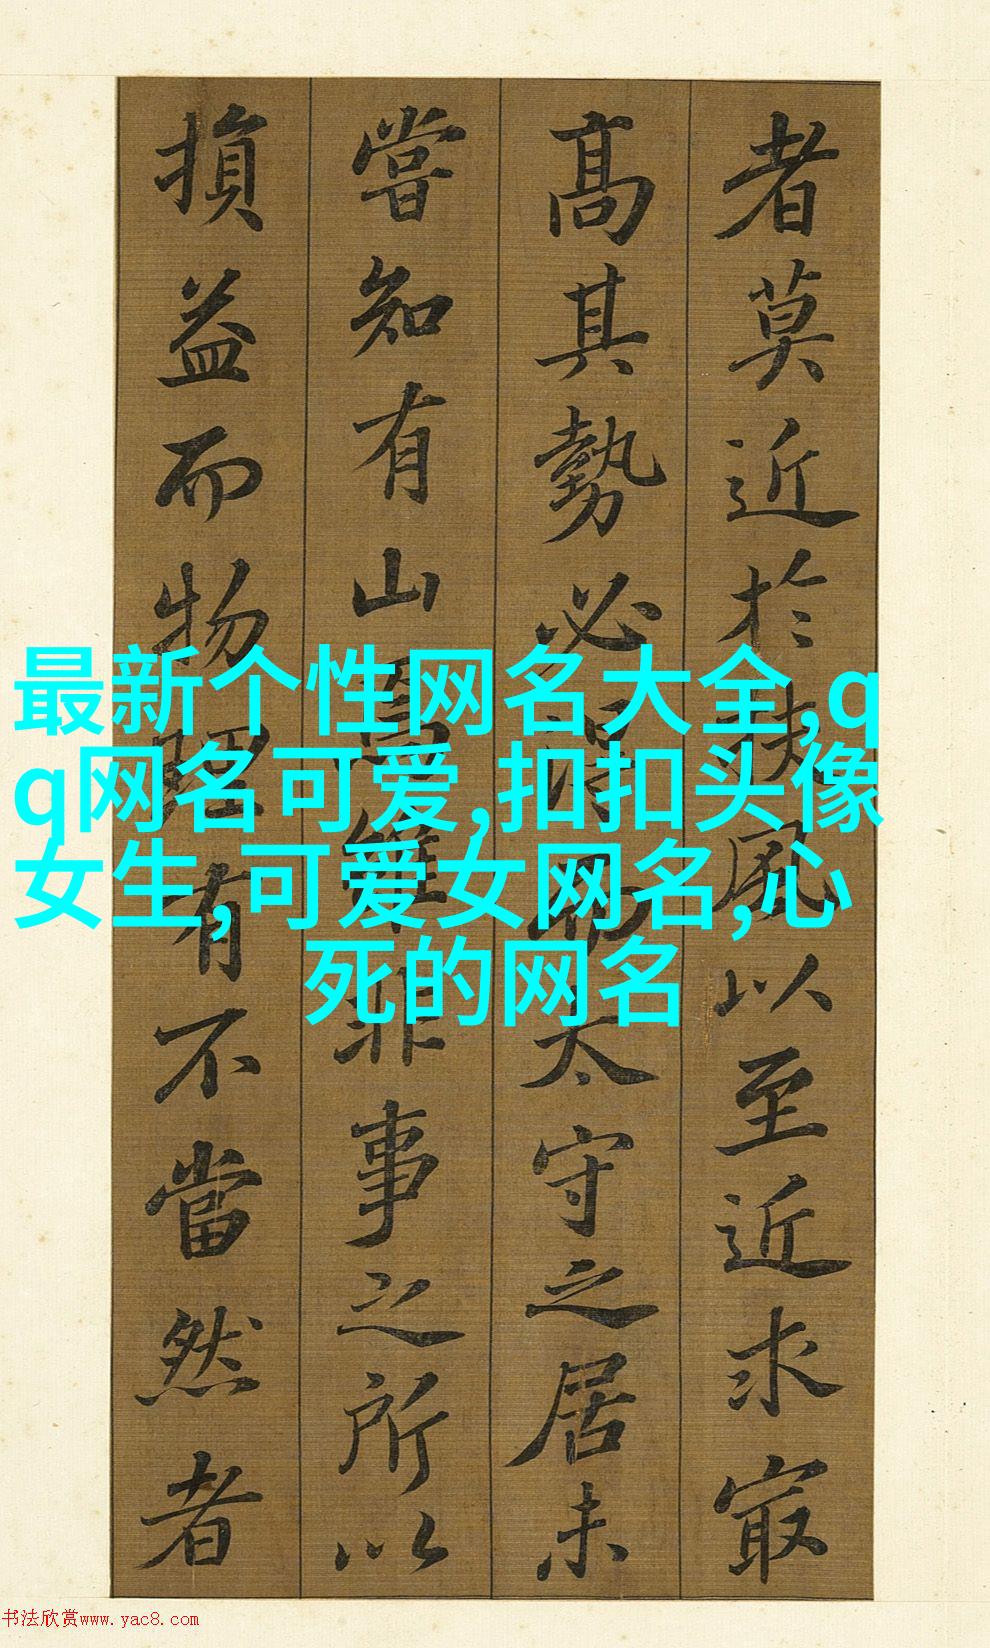 者莫近於扶風以至近求㝡
高其勢必得而太守之居未
嘗知有山焉雖非事之所以
損益而物理有不當然者
最新个性网名大全,q
q网名可爱,扣扣头像
女生,可爱女网名,心
死的网名
书法欣赏www.yac8.com